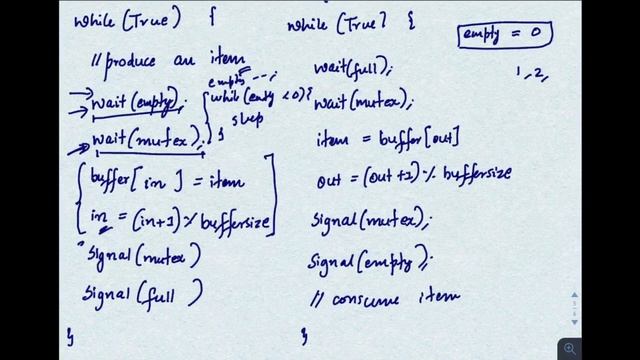 while(True) {
// produce an item
wait(empty);
wait(mutex);
buffer[in] = item
in = (in+1) % buffersize
Signal(mutex)
Signal(full)
}
empty--;
while(empty <0){
sleep
}
while(True) {
wait(full);
wait(mutex);
item = buffer[out]
out = (out+1) % buffersize
Signal(mutex);
Signal(empty);
// consume item
}
empty = 0
1, 2,